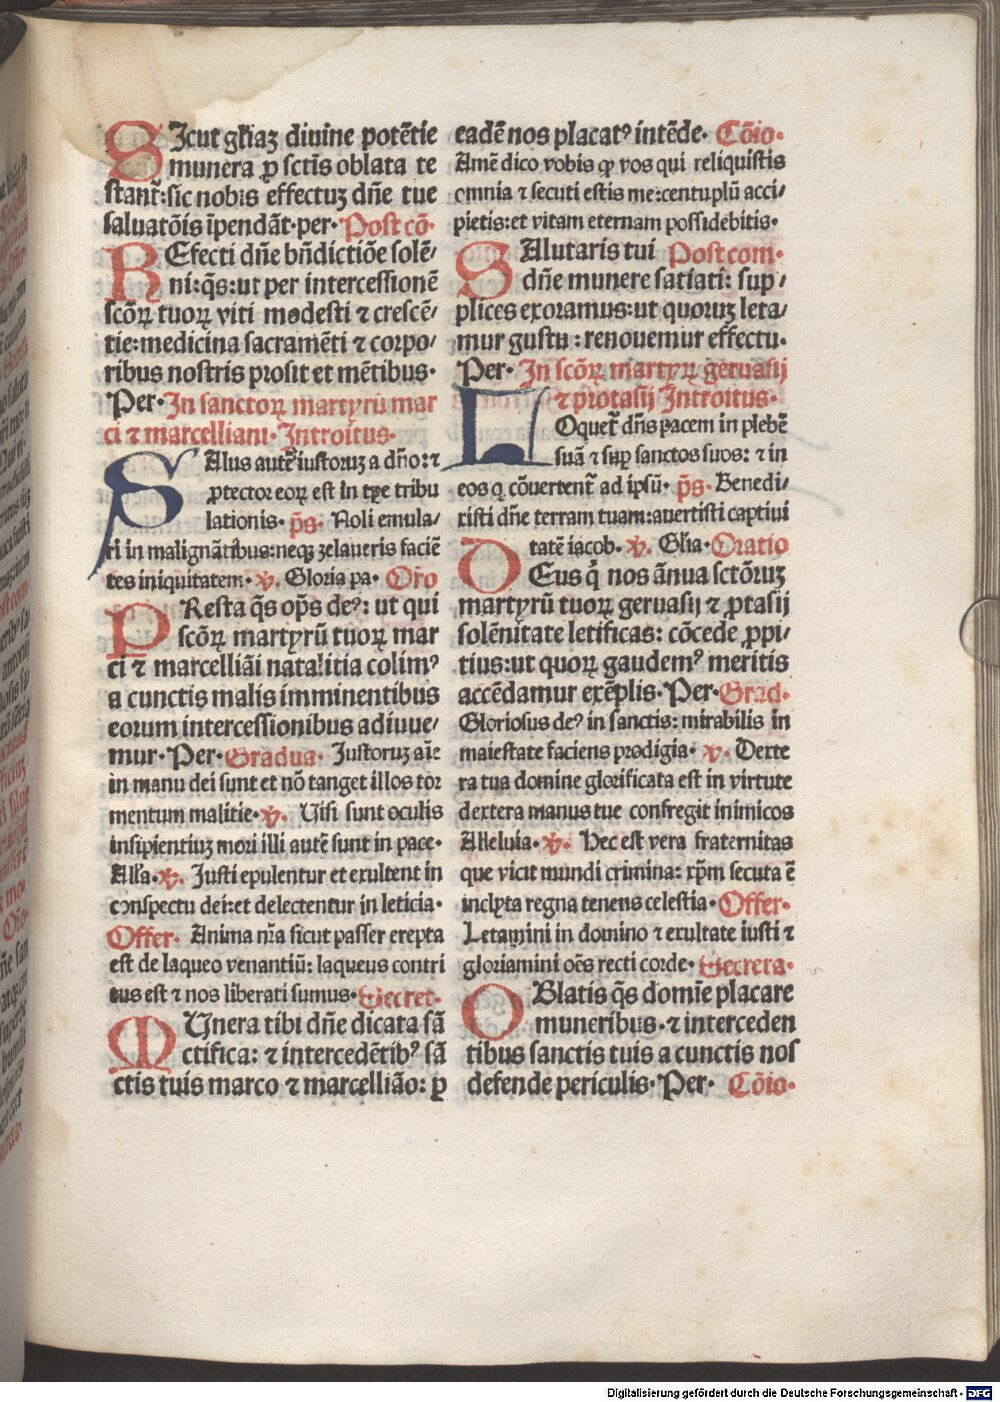 SIcut gl̄iaꝫ diuine potētie
munera ꝓ sctīs oblata te
stant᷑:sic nobis effectuꝫ dn̄e tue
saluatōis īpendāt·per· Post cō·
REfecti dn̄e bn̄dictiōe solē/
ni:q̄s:ut per intercessionē
scōꝝ tuoꝝ viti modesti ⁊ crescē/
tie:medicina sacramēti ⁊ corpo/
ribus nostris prosit et mētibus·
Per· In sanctoꝝ martyrū mar
ci ⁊ marcelliani· Introitus·
SAlus autē iustoruꝫ a dn̄o:⁊
ꝓtector eoꝝ est in tꝑe tribu
lationis· p̄s· Noli emula/
ri in malignātibus:neqꝫ zelaueris faciē
tes iniquitatem· ℣. Gloria pa· Oro
PResta q̄s op̄s deꝰ: ut qui
scōꝝ martyrū tuoꝝ mar
ci ⁊ marcelliāi natalitia colimꝰ
a cunctis malis imminentibus
eorum intercessionibus adiuue/
mur· Per· Gradua· Iustoruꝫ aīe
in manu dei sunt et nō tanget illos tor
mentum malitie· ℣. Uisi sunt oculis
insipientiuꝫ mori illi autē sunt in pace·
All'a· ℣. Iusti epulentur et exultent in
conspectu dei:et delectentur in leticia·
Offer· Anima nr̄a sicut passer erepta
est de laqueo venantiū: laqueus contri
tus est ⁊ nos liberati sumus· Secret·
MUnera tibi dn̄e dicata sā
ctifica: ⁊ intercedētibꝰ sā
ctis tuis marco ⁊ marcelliāo: ꝑ
eadē nos placatꝰ intēde· Cōio·
Amē dico vobis ꝙ vos qui reliquistis
omnia ⁊ secuti estis me:centuplū acci/
pietis:et vitam eternam possidebitis·
SAlutaris tui Postcom·
dn̄e munere satiati: sup/
plices exoramus:ut quoruꝫ leta/
mur gustu : renouemur effectu·
Per· In scōꝝ martyꝝ geruasij
⁊ protasij Introitus·
LOquet᷑ dn̄s pacem in plebē
suā ⁊ suꝑ sanctos suos: ⁊ in
eos q̨ cōuertent᷑ ad ipsū· p̄s· Benedi/
xisti dn̄e terram tuam:auertisti captiui
tatē iacob. ℣. Gl̄ia· Oratio
DEus q̇ nos ānua sctōruꝫ
martyrū tuoꝝ geruasij ⁊ ꝓtasij
solēnitate letificas: cōcede ꝓpi/
tius:ut quoꝝ gaudemꝰ meritis
accēdamur exēplis· Per· Grad·
Gloriosus deꝰ in sanctis: mirabilis in
maiestate faciens prodigia· ℣. Dexte
ra tua domine glorificata est in virtute
dextera manus tue confregit inimicos
Alleluia· ℣. Hec est vera fraternitas
que vicit mundi crimina: xp̄m secuta ē
inclyta regna tenens celestia· Offer·
Letamini in domino ⁊ exultate iusti ⁊
gloriamini oēs recti corde· Secreta·
OBlatis q̄s domīe placare
muneribus·⁊ interceden
tibus sanctis tuis a cunctis nos
defende periculis· Per· Cōio·
Digitalisierung gefördert durch die Deutsche Forschungsgemeinschaft · DFG